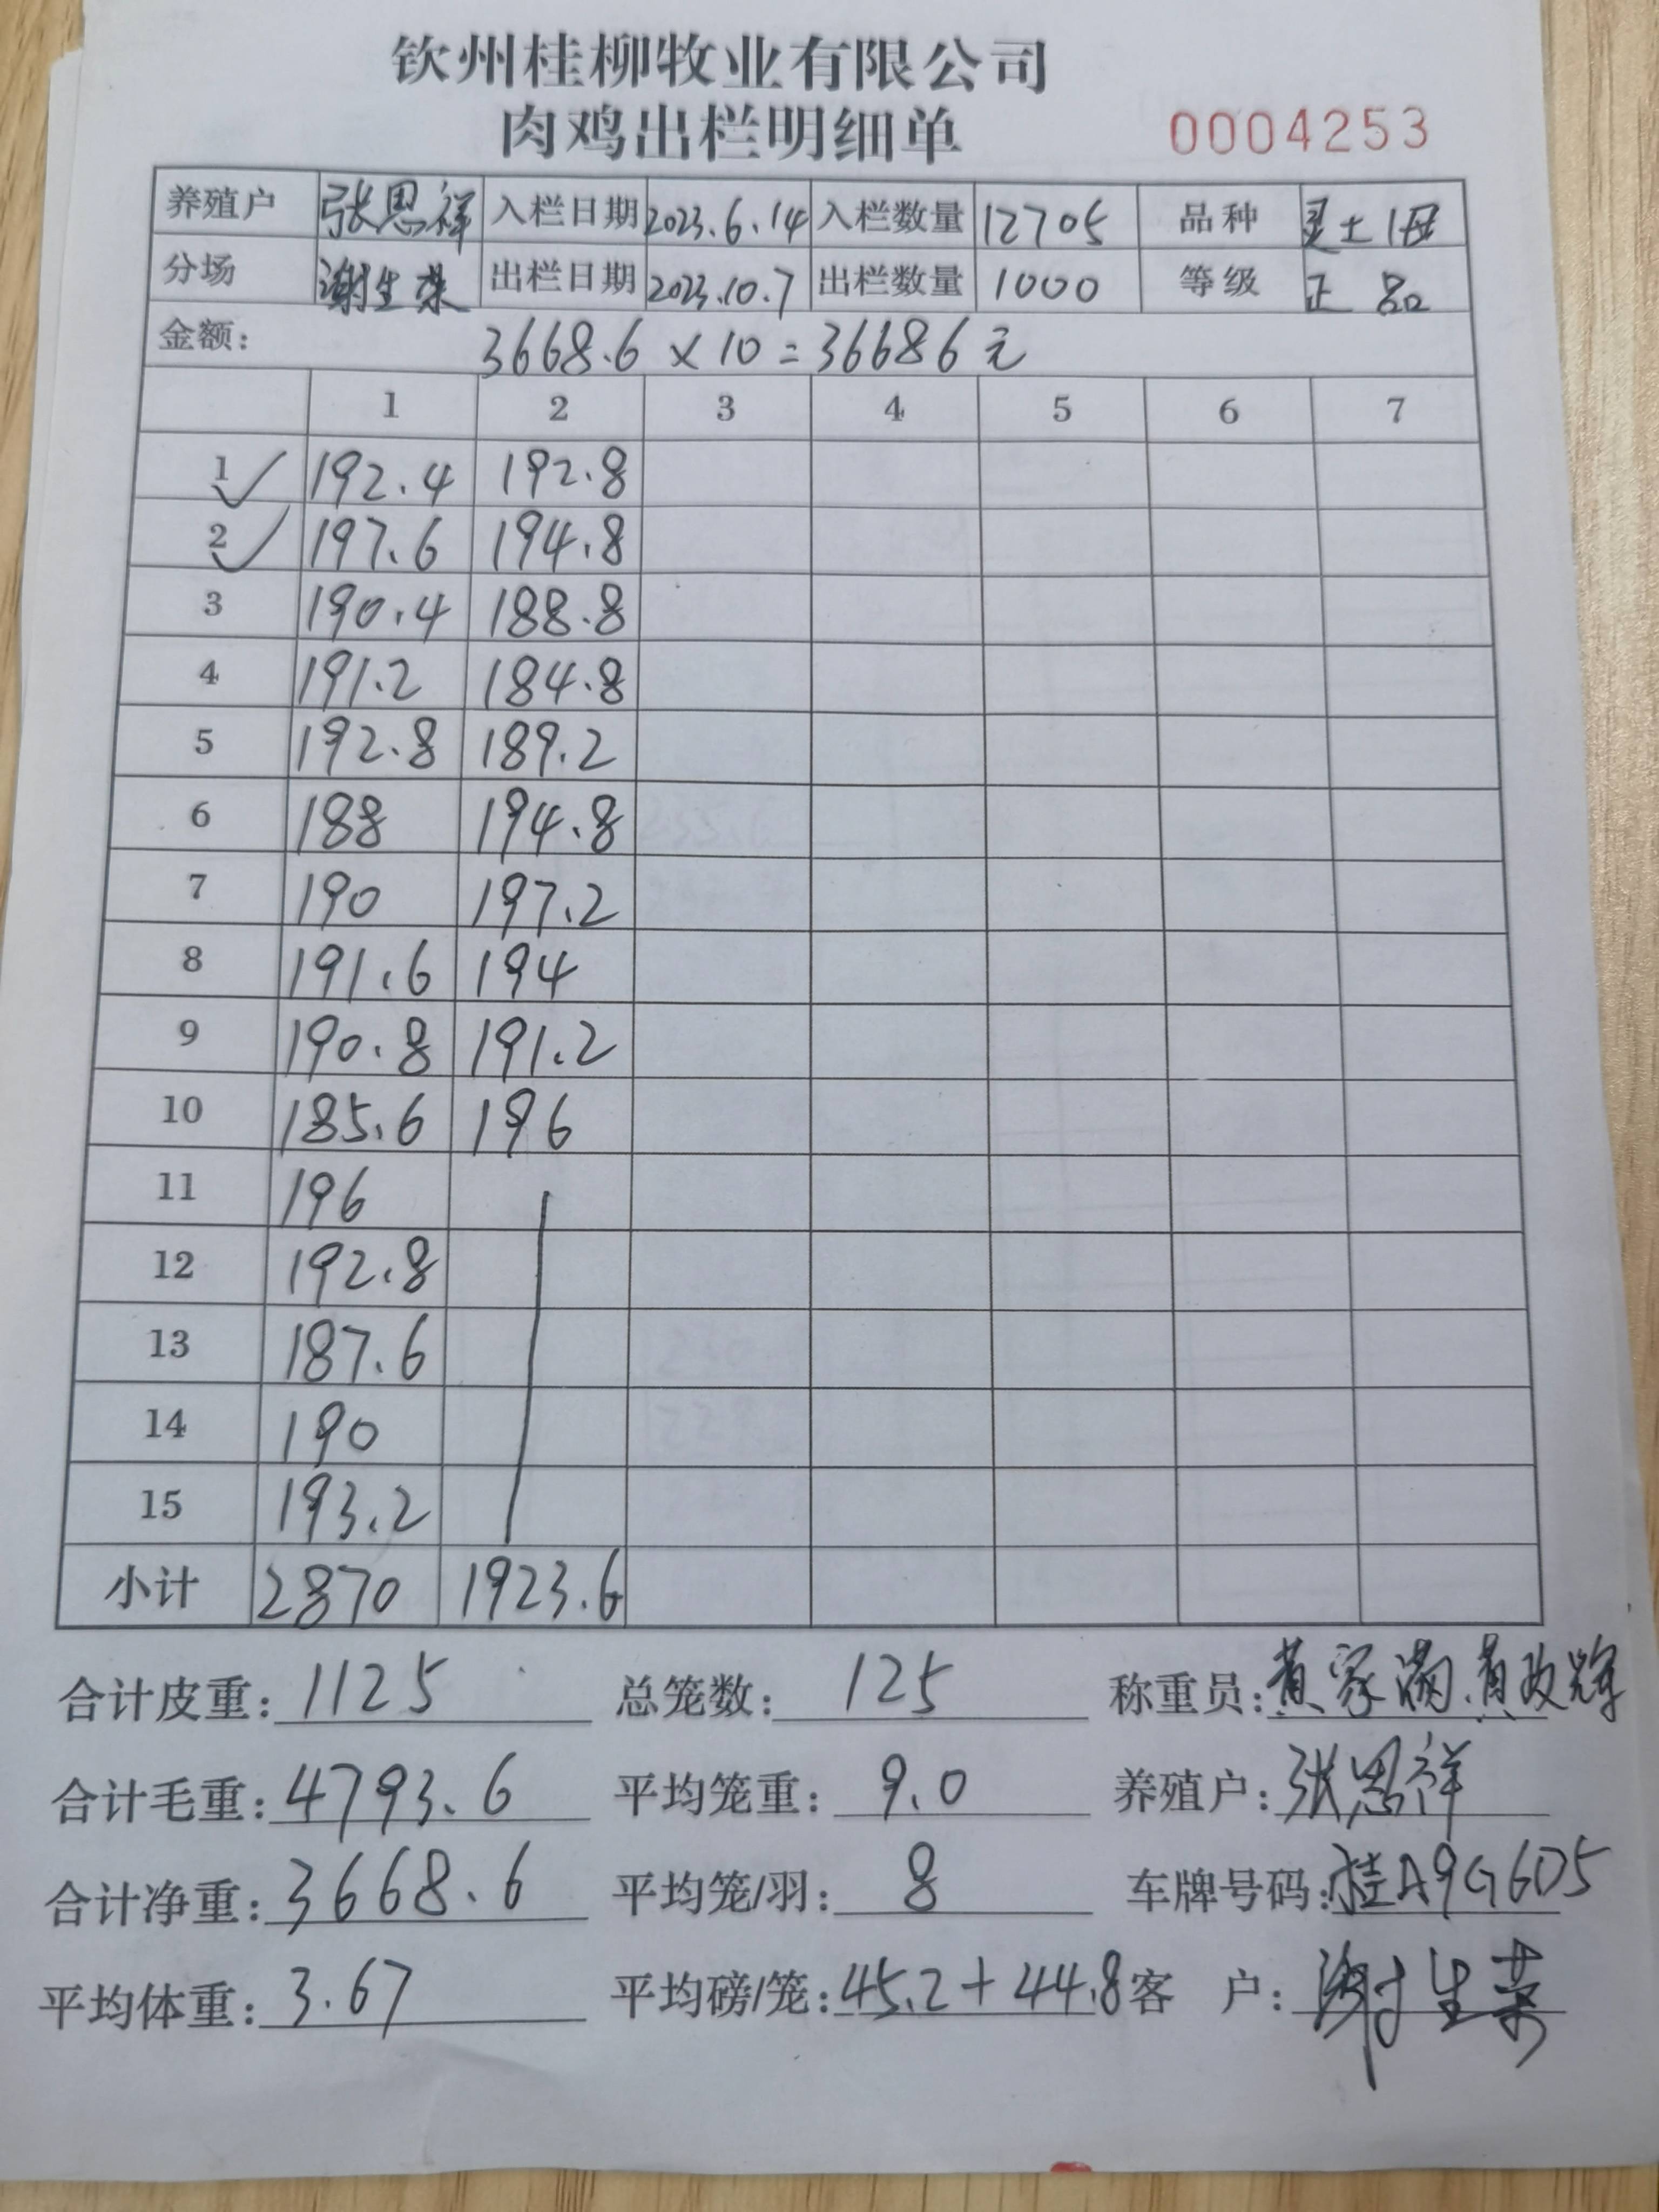 钦州桂柳牧业有限公司
肉鸡出栏明细单 0004253
养殖户 张思祥 入栏日期 2023.6.14 入栏数量 12705 品种 灵土1母
分场 谢生荣 出栏日期 2023.10.7 出栏数量 1000 等级 正品
金额: 3668.6 × 10 = 36686 元
1 2 3 4 5 6 7
1 ✓ 192.4 192.8
2 ✓ 197.6 194.8
3 190.4 188.8
4 191.2 184.8
5 192.8 189.2
6 188 194.8
7 190 197.2
8 191.6 194
9 190.8 191.2
10 185.6 196
11 196
12 192.8
13 187.6
14 190
15 193.2
小计 2870 1923.6
合计皮重: 1125 总笼数: 125 称重员: 黄家满.黄政辉
合计毛重: 4793.6 平均笼重: 9.0 养殖户: 张思祥
合计净重: 3668.6 平均笼/羽: 8 车牌号码: 桂A9G6D5
平均体重: 3.67 平均磅/笼: 45.2+44.8 客 户: 谢生荣